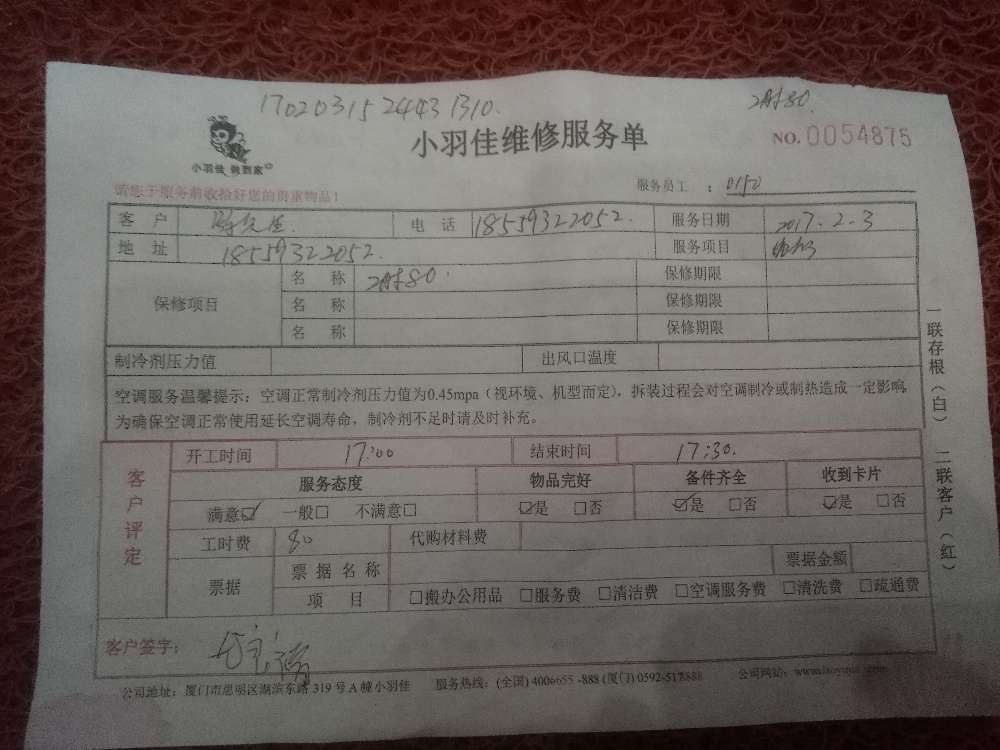 170203152443 1310.
80.
小羽佳 做到家
小羽佳维修服务单
NO. 0054875
请您于服务前收拾好您的贵重物品!
服务员工 : 0150
客户 电话 18559322052. 服务日期 2017.2.3
地址 18559322052. 服务项目
保修项目 名称 80. 保修期限
名称 保修期限
名称 保修期限
制冷剂压力值 出风口温度
空调服务温馨提示:空调正常制冷剂压力值为0.45mpa(视环境、机型而定),拆装过程会对空调制冷或制热造成一定影响,
为确保空调正常使用延长空调寿命,制冷剂不足时请及时补充。
客户评定
开工时间 17:00 结束时间 17:30.
服务态度 物品完好 备件齐全 收到卡片
满意☑ 一般□ 不满意□ ☑是 □否 ☑是 □否 ☑是 □否
工时费 80 代购材料费
票据 票据名称 票据金额
项目 □搬办公用品 □服务费 □清洁费 □空调服务费 □清洗费 □疏通费
客户签字:
公司地址:厦门市思明区湖滨东路 319 号 A 幢小羽佳 服务热线:(全国) 4006655 -888 (厦门) 0592-5178888 公司网站:
一联存根(白) 二联客户(红)